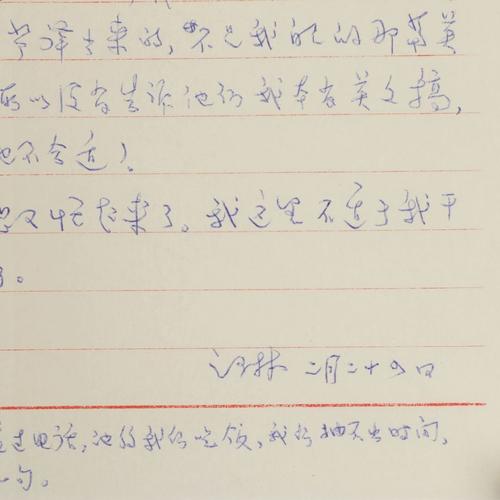 译出来的,不是我的那篇英
所以没有告诉他们我本有英文稿,
也不合适)。
您又忙起来了。我这里不适于我干
了。
二月二十
过电话,他约我们吃饭,我们抽不出时间,
一句。